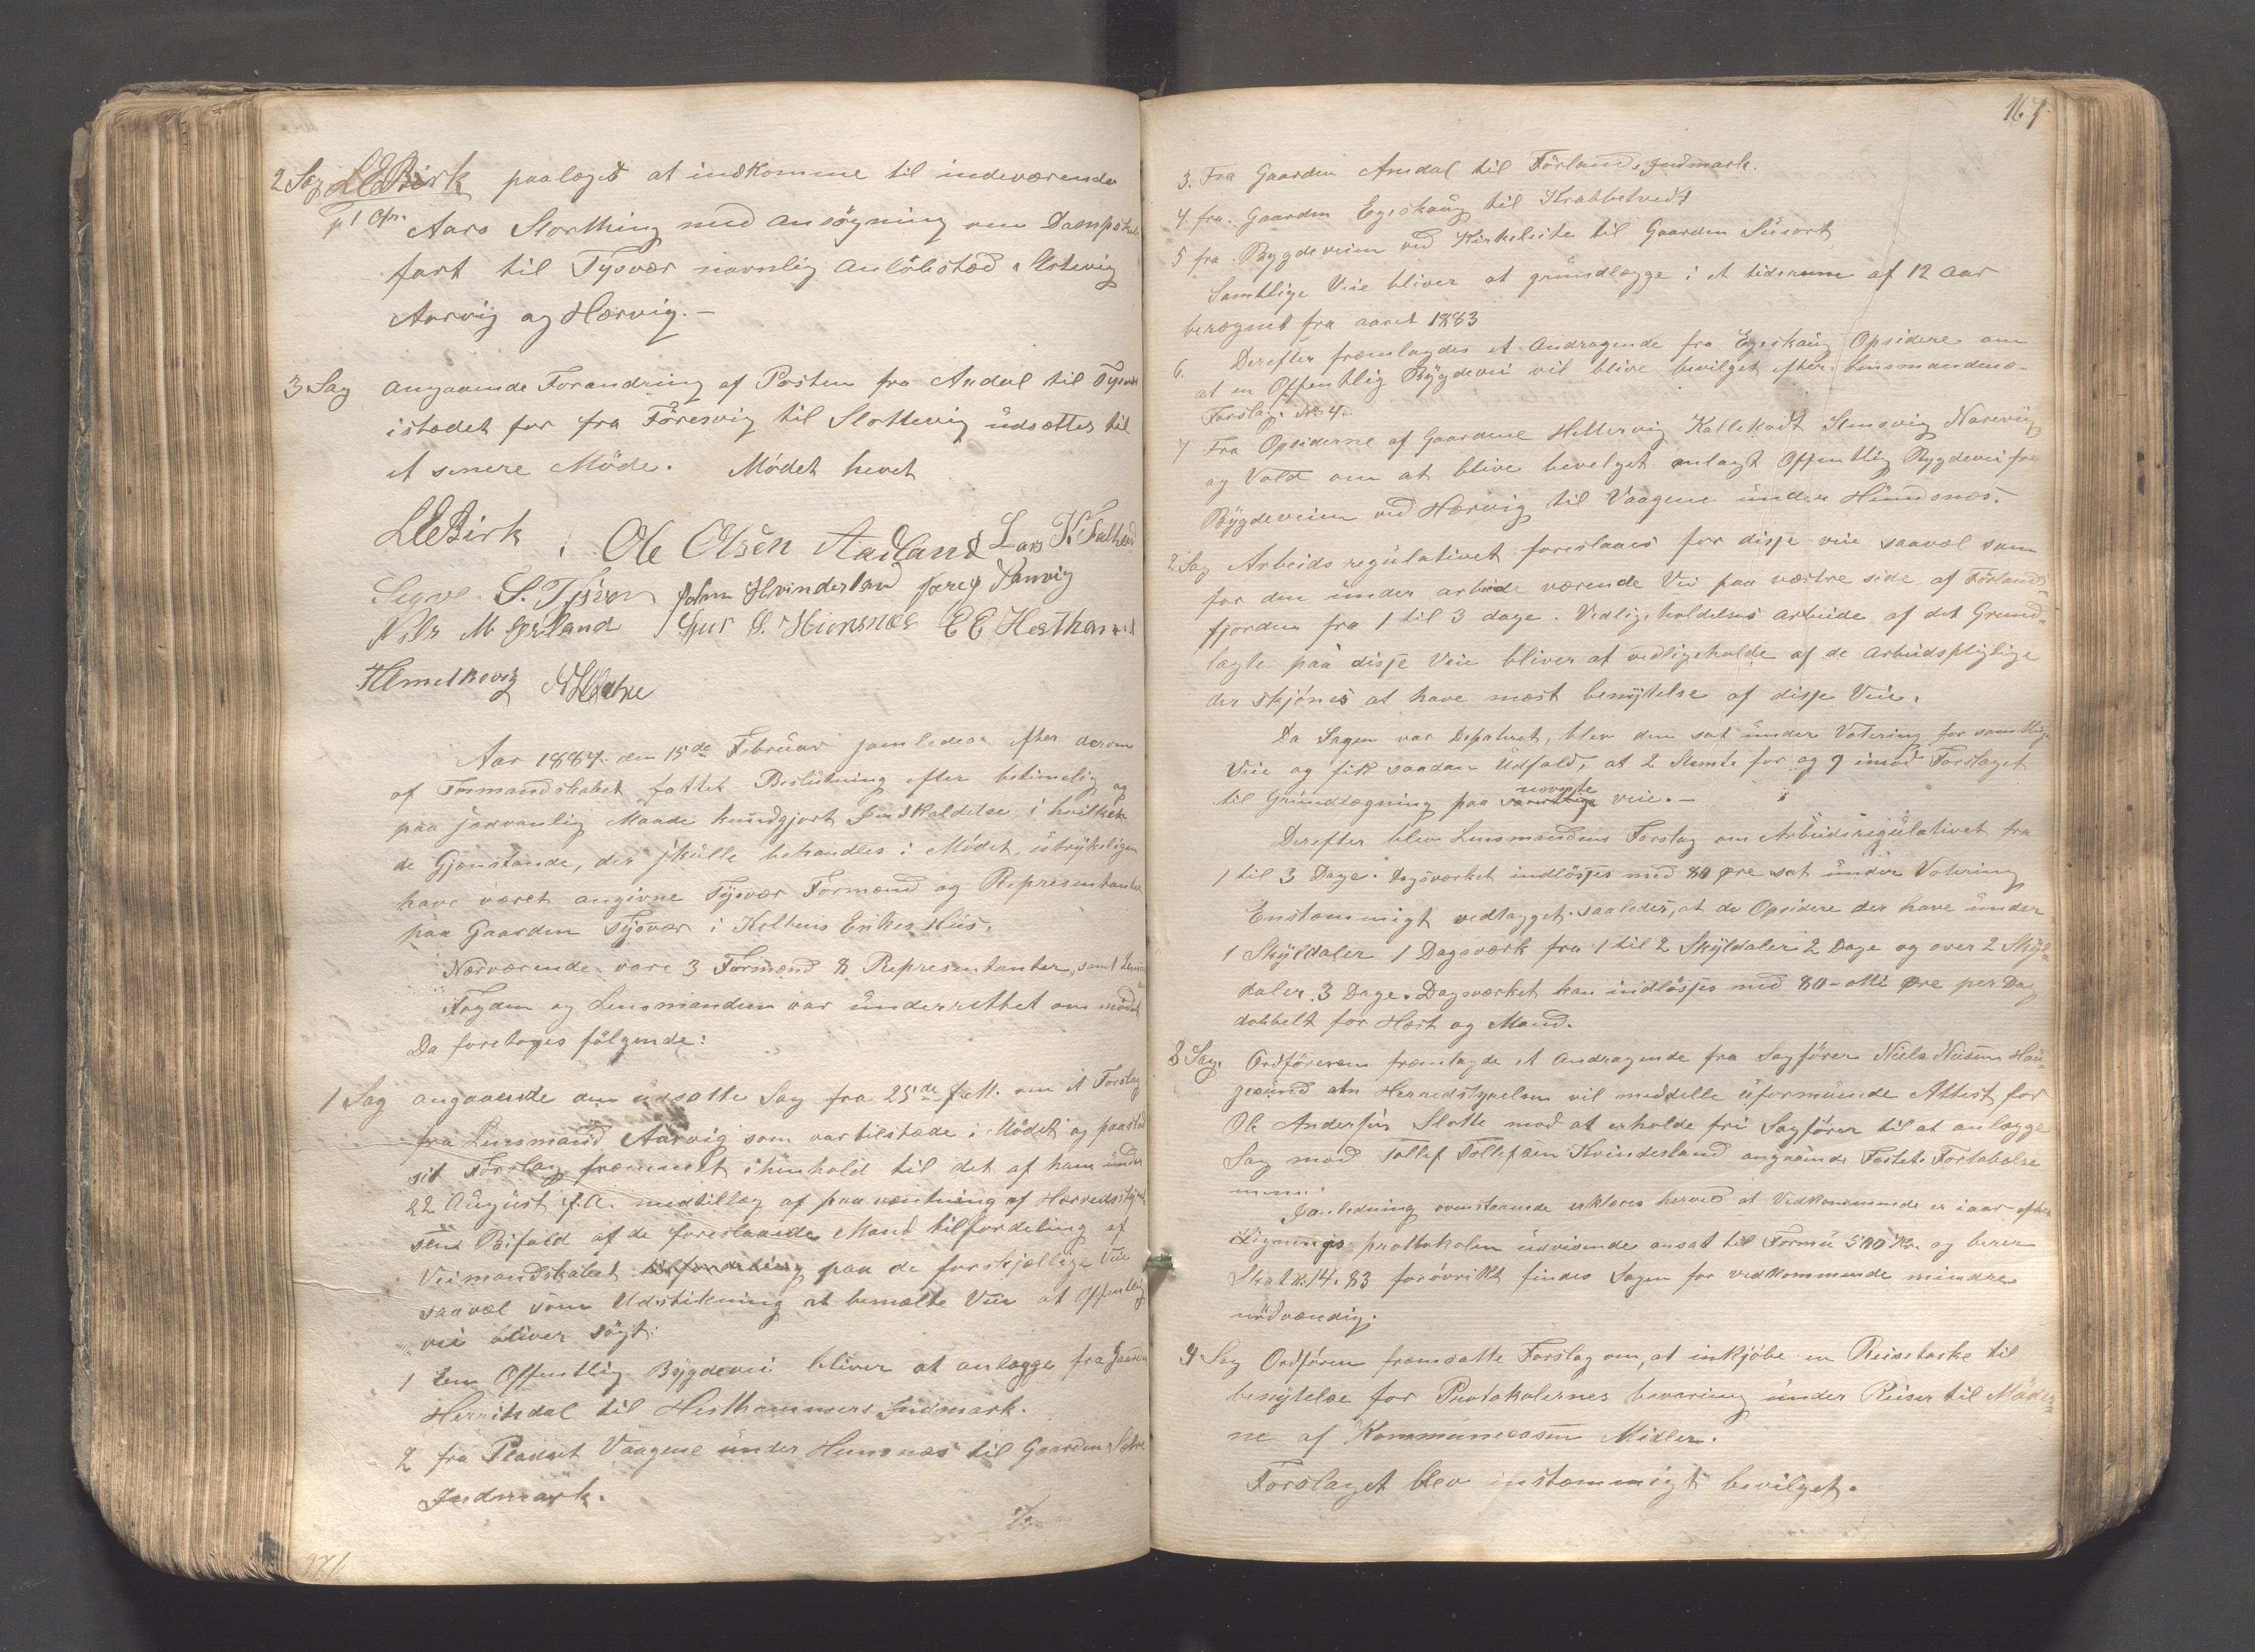 2 Sag LEBirk paalagt at indkomme til indeværende
Aars Storthing med ansøgning om Dampskibs
fart til Tysvær navnlig anløbsted Slottevig
Aarvig og Hervig.—
3 Sag angaaende Forandring af Posten fra Andal til Tysvær
istædet for fra Föresvig til Slottevig udsættes til
et senere Møde. Mødet hevet
LEBirk Ole Olsen Aadland Lars K.
Sigve S. Tysver John Hvinderland Tareg Ramvig
Nils M Førland Sjur S. Hunsnæs E E Hesthammer
Aar 1884 den 15de Februar samledes efter derom
af Formandskabet fattet Beslutning efter betimelig og
paa sædvanlig Maade kundgjort Indkaldelse, i hvilken
de Gjenstande, der skulle behandles i Mødet, utrykeligen
have været angivne Tysvær Formænd og Representanter
paa Gaarden Tysvær i Kolbens Enkes Hus.
Nærværende vare 3 Formænd 8 Representanter, samt
Fogden og Lensmanden var underrettet om mødet
Da foretoges følgende:
1 Sag angaaende den udsatte Sag fra 25de f. M. om et Forslag
fra Lensmand Aarvig som var tilstæde i Mødet og paastod
sit Forslag fræmmet ihenhold til det af ham under
22 August f.A. medtillæg af paa væntning af Herredsstyrel
sens Bifald af de foreslaaede Mand tilfordeling af
Veimandskabet tilfordeling paa de forskjællige Veie
saavæl som Udstikning at bemælte Veie at Offentlig
vei bliver søgt:
1 Een Offentlig Bygdevei bliver at anlægge fra Gaarden
Herritsdal til Hesthammers Indmark.
2 fra Pladset Vaagene under Hunsnæs til Gaarden
Indmark.
161
3. Fra Gaarden Amdal til Førlands Indmark.
4. fra Gaarden Egeskaug til Krabbetvedt
5 fra Bygdeveien ved Kirkeleite til Gaarden Susort
Samtlige Veie bliver at grundlægge i et tidsrum af 12 Aar
beregnet fra aaret 1883
6. Derefter fræmlagdes et Andragende fra Egeskaug Opsidere om
at en Offentlig Bygdevei vil blive bevilget efter Lensmandens
Forslag No 4.
7 Fra Opsiderne af Gaardene Hettervig Kallekodt Stensvig Narevig
og Vold om at blive bevelget anlagt Offentlig Bygdevei fra
Bygdeveien ved Hærvig til Vaagene under Hundsnæs.
2 Sag Arbeids regulativet foreslaaes for disse veie saavæl som
for den under arbeide værende Vei paa væstre side af Førlands
fjorden fra 1 til 3 dage. Vedligeholdelses arbeide af det Grund-
lagte paa disse Veie bliver at vedligeholde af de arbeidspligtige
der skjønes at have mæst benyttelse af disse Veie.
Da Sagen var Depateret, blev den sat under Votering for samtlige
Veie og fik saadan Udfald, at 2 Stemte for og 9 imod Forslaget
til Grundlægning paa samtlige nævnte veie.—
Derefter blev Lensmandens Forslag om Arbeidsregulativet fra
1 til 3 Dage. Dagsværket indløsses med 80 øre sat under Votering
Enstæmmigt vedtagget saaledes, at de Opsidere der have under
1 Skyldaler 1 Dagsværk fra 1 til 2 Skyldaler 2 Dage og over 2 Skyl-
daler 3 Dage. Dagsværket kan indløsses med 80-otti Øre per Dag
dobbelt for Hæst og Mand.
3 Sag. Ordføreren fræmlagde et Andragende fra Sagfører Niels Nilsen Hau-
gesund om Herredstyrelsen vil meddelle uformuende Attest for
Ole Andersen Slotte mod at erholde fri Sagfører til at anlægge
Sag mod Tollef Tollefsen Hvindesland angaaende Fæstets Fortabelse
I anledning ovenstaaende erklæres herved at Vedkommende er i aar efter
Ligningsprottokolen udvisende ansat til Formu 500 Kr. og berer
Skat kr. 14.83 forøvrikt findes Sagen for vedkommende mindre
nødvændig.
4 Sag Ordføren fræmsatte Forslag om, at inkjøbe en Reisetaske til
benytelse for Protokolernes bevaring under Reiser til Møder-
ne af Kommunecasen Midler.
Forslaget blev instæmmigt bevilget.